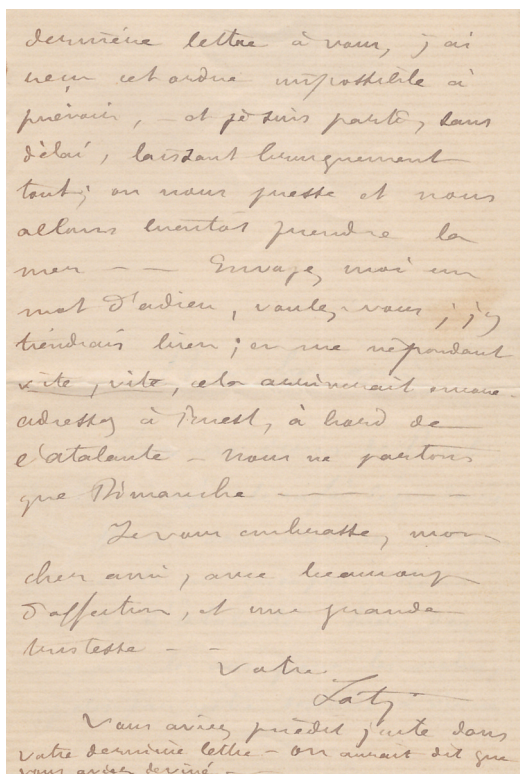 dernière lettre à vous, j'ai
reçu cet ordre impossible à
prévoir, – et je suis parti, sans
délai, laissant brusquement
tout; on nous presse et nous
allons bientôt prendre la
mer – – Envoyez moi un
mot d'adieu, voulez-vous; j'y
tiendrais bien; en me répondant
vite, vite, cela arriverait encore.
adressez à Brest, à bord de
l'atalante – Nous ne partons
que Dimanche – – – –
Je vous embrasse, mon
cher ami, avec beaucoup
d'affection, et une grande
tristesse – –
Votre
Loti
Vous aviez prédit juste dans
votre dernière lettre – On aurait dit que
vous aviez deviné –